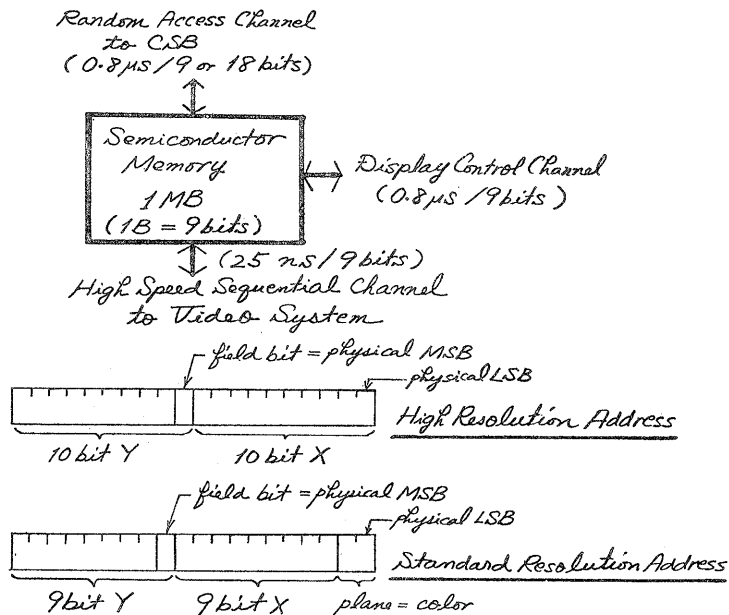 Random Access Channel
to CSB
(0.8 μs / 9 or 18 bits)
Semiconductor
Memory
1 MB
(1B = 9 bits)
Display Control Channel
(0.8 μs / 9 bits)
(25 ns / 9 bits)
High Speed Sequential Channel
to Video System
field bit = physical MSB
physical LSB
High Resolution Address
10 bit Y
10 bit X
field bit = physical MSB
physical LSB
Standard Resolution Address
9 bit Y
9 bit X
plane = color